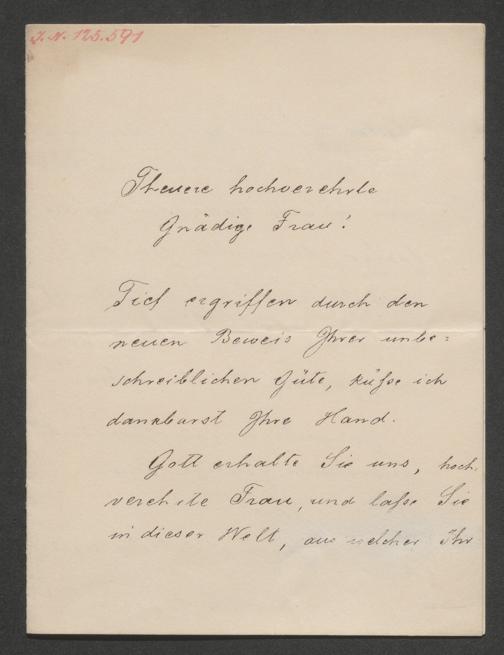 J. N. 125.591
Theuere hochverehrte
Gnädige Frau!
Tief ergriffen durch den
neuen Beweis Ihrer unbe=
schreiblichen Güte, küße ich
dankbarst Ihre Hand.
Gott erhalte Sie uns, hoch
verehrte Frau, und laße Sie
in dieser Welt, aus welcher Ihr